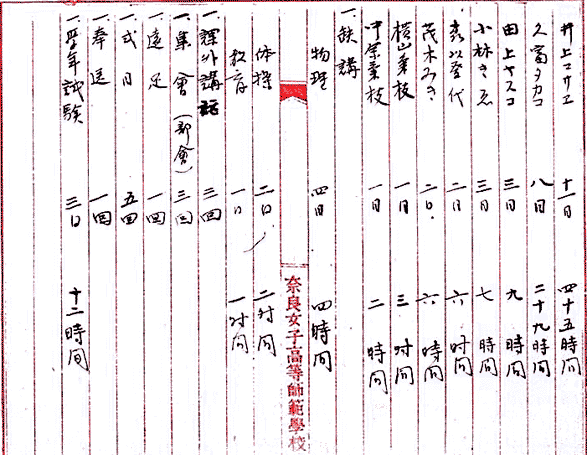 井上マサエ 十一日 四十五時間
久富タカコ 八日 二十九時間
田上ヤスコ 三日 九時間
小林きゑ 三日 七時間
二日 六时间
茂木みき 二日 六時间
横山兼枝 一日 三时间
一日 二時间
一、缺講
物理 四日 四時間
奈良女子高等師範學校
体操 二日 二时间
教育 一日 一时间
一、課外講話 三回
一、集會(部會) 三回
一、遠足 一回
一、式日 五回
一、奉送 一回
一、學年試驗 三日 十二時間